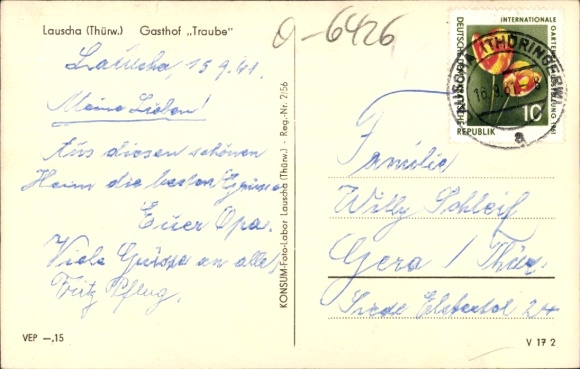 Lauscha (Thürw.) Gasthof „Traube"
O-6426
Lauscha, 15.9.61.
Meine Lieben!
Aus diesem schönen
Heim die besten Grüsse
Euer Opa.
Viele Grüsse an alle,
Fritz Pflug.
VEP —,15
KONSUM-Foto-Labor Lauscha (Thürw.) - Reg.-Nr. 2/56
INTERNATIONALE
GARTENBAUAUSSTELLUNG 1961
DEUTSCHE DEMOKRATISCHE
REPUBLIK
10
LAUSCHA (THÜRINGERW)
16.9.61
a
Familie
Willy Schleif
Gera / Thür.
Elstertal 24
V 17 2